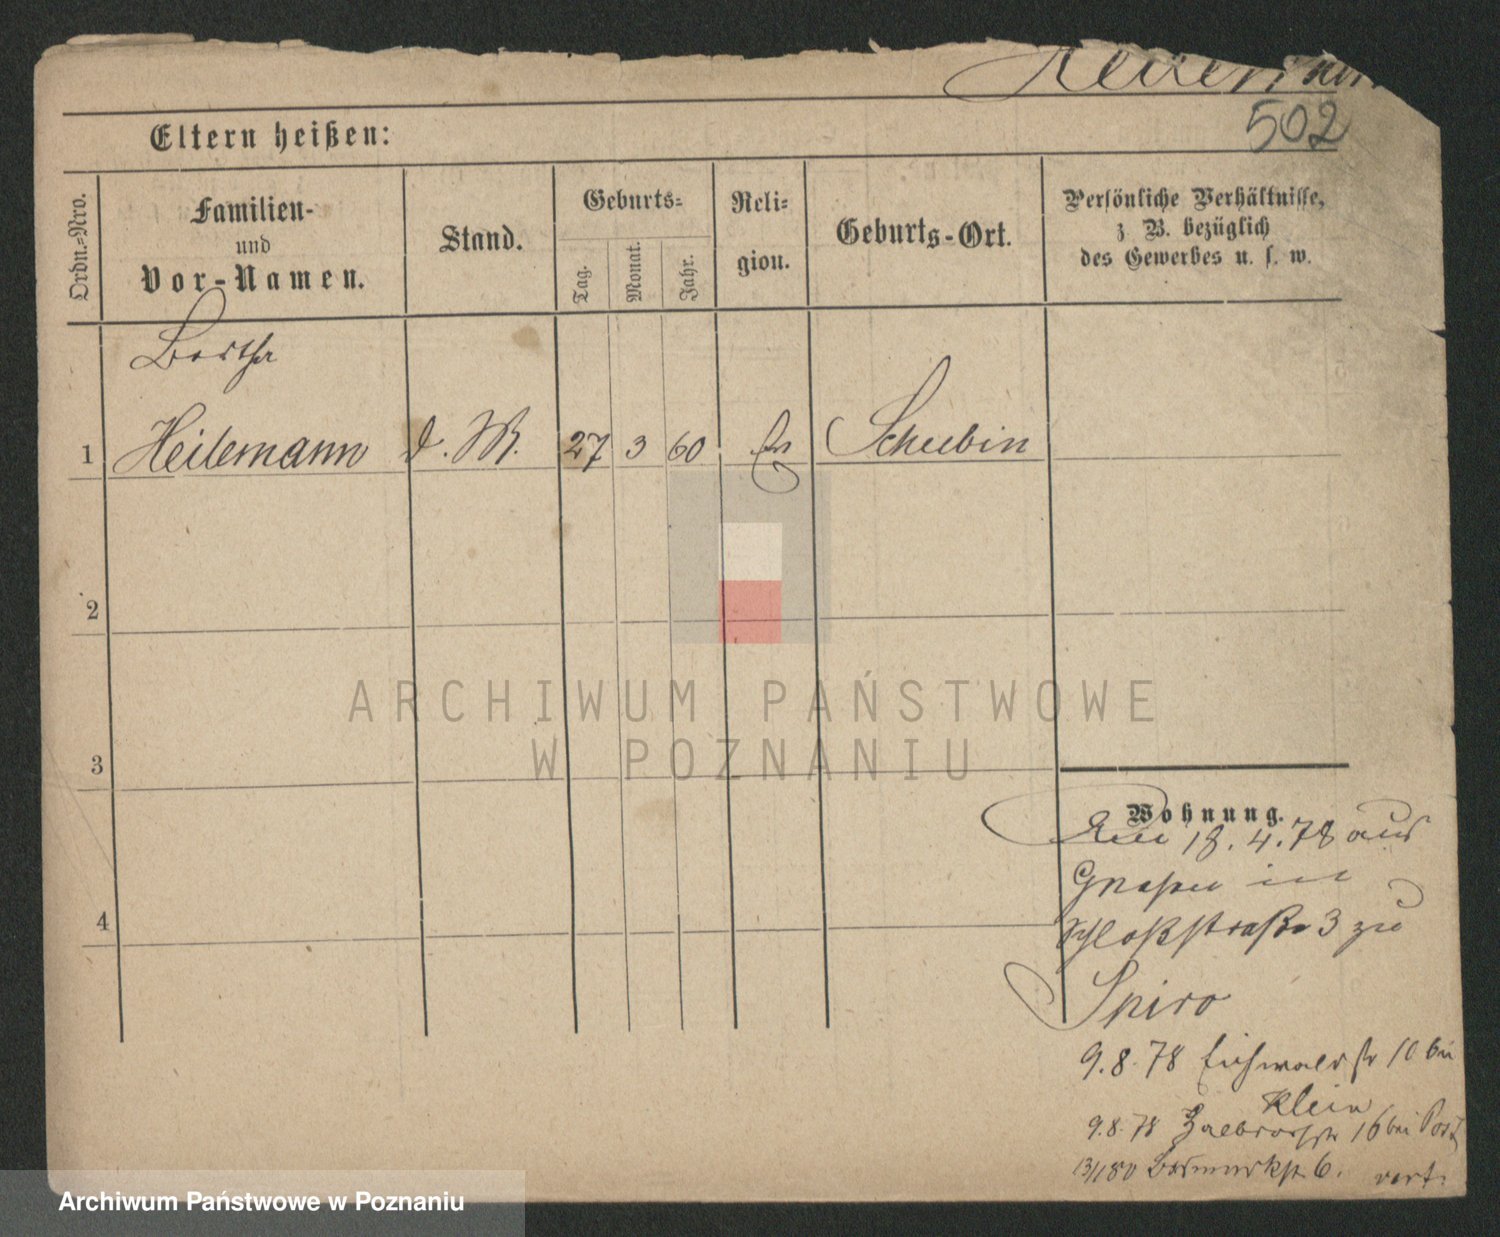 502
Eltern heißen:
Ordn.=Nro.
Familien-
und
Vor-Namen.
Stand.
Geburts=
Tag.
Monat.
Jahr.
Reli=
gion.
Geburts-Ort.
Persönliche Verhältnisse,
z B. bezüglich
des Gewerbes u. s. w.
Bertha
1 Heilemann d. M. 27 3 60 Schubin
2
3
4
Wohnung.
18.4.78 aus
Gnesen in
Schloßstraße 3 zu
Spiro
9.8.78 Eichwaldstr 10 bei
Klein
9.8.78 16 bei
13/1 80 Bismarkstr 6.
ARCHIWUM PAŃSTWOWE
W POZNANIU
Archiwum Państwowe w Poznaniu